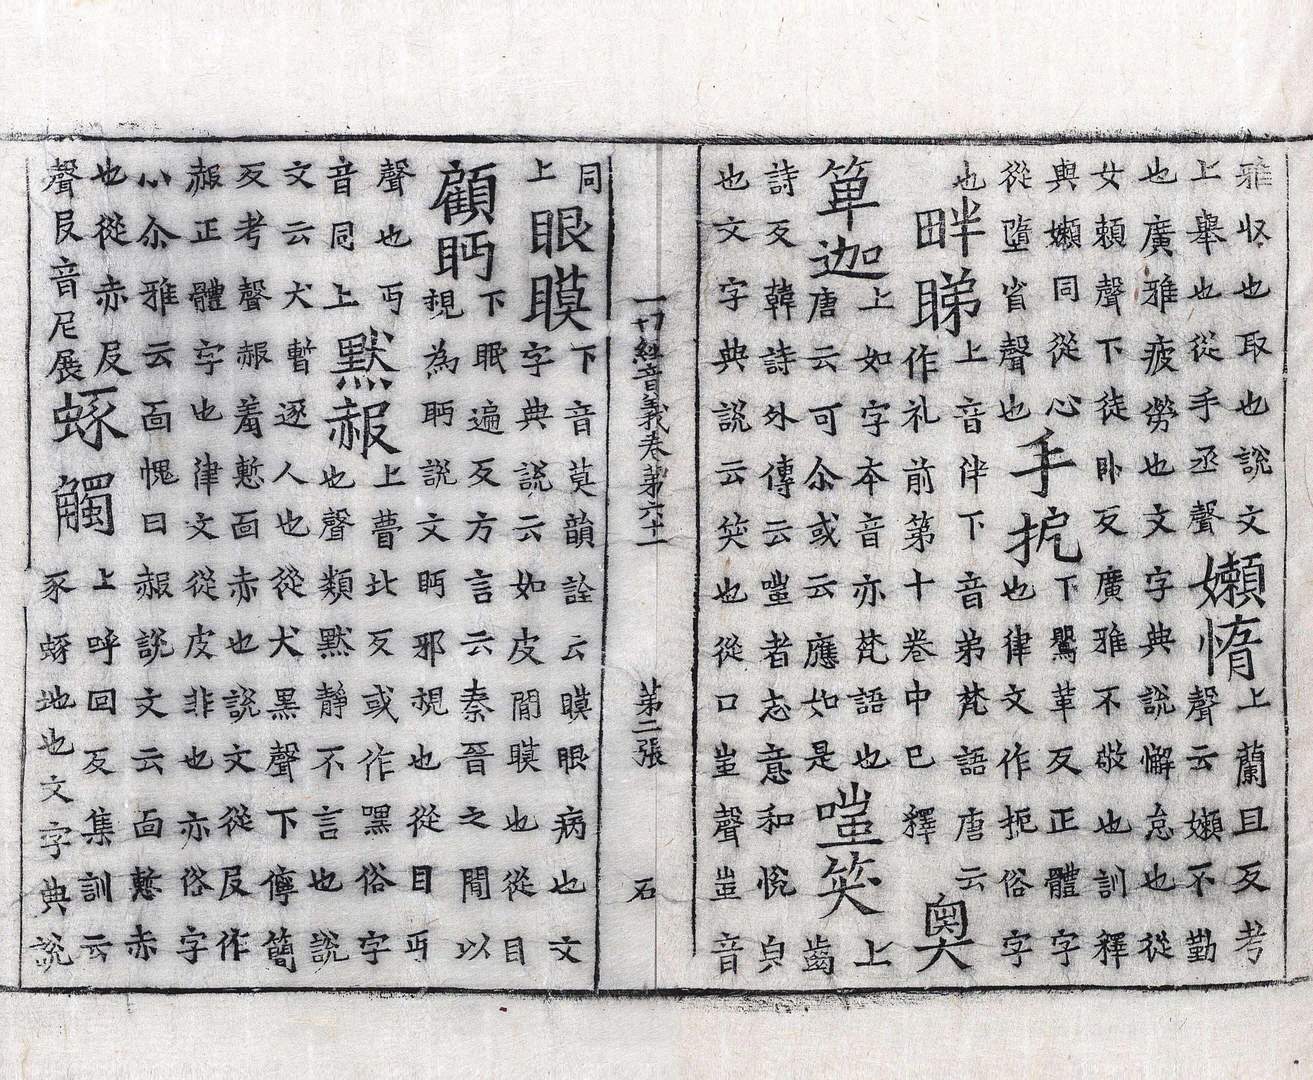 雅収也取也說文
上舉也從手丞聲
嬾惰
上蘭且反考
聲云嬾不勤
也廣雅疲勞也文字典說懈怠也從
女賴聲下徒卧反廣雅不敬也訓釋
與嬾同從心
從墮省聲也
手㧖
下鸎革反正體字
也律文作扼俗字
也
畔睇
上音伴下音弟梵語唐云
作礼前第十卷中已釋
奧
箄迦
上如字本音亦梵語也
唐云可尒或云應如是
嗤笑
上
齒
詩反韓詩外傳云嗤者志意和悅皃
也文字典說云笑也從口蚩聲蚩音
一切經音義卷第六十一 第二張 石
同
上
眼瞙
下音莫韻詮云瞙眼病也文
字典說云如皮閒瞙也從目
顧眄
下眠遍反方言云秦晉之閒以
視為眄說文眄邪視也從目丏
聲也丏
音同上
默赧
上瞢北反或作嘿俗字
也聲類默靜不言也說
文云犬暫逐人也從犬黑聲下儜簡
反考聲赧羞慙面赤也說文從𠬝作
赧正體字也律文從皮非也亦俗字
小尒雅云面愧曰赧說文云面慙赤
也從赤𠬝
聲𠬝音尼展
觸
上呼回反集訓云
豕地也文字典說